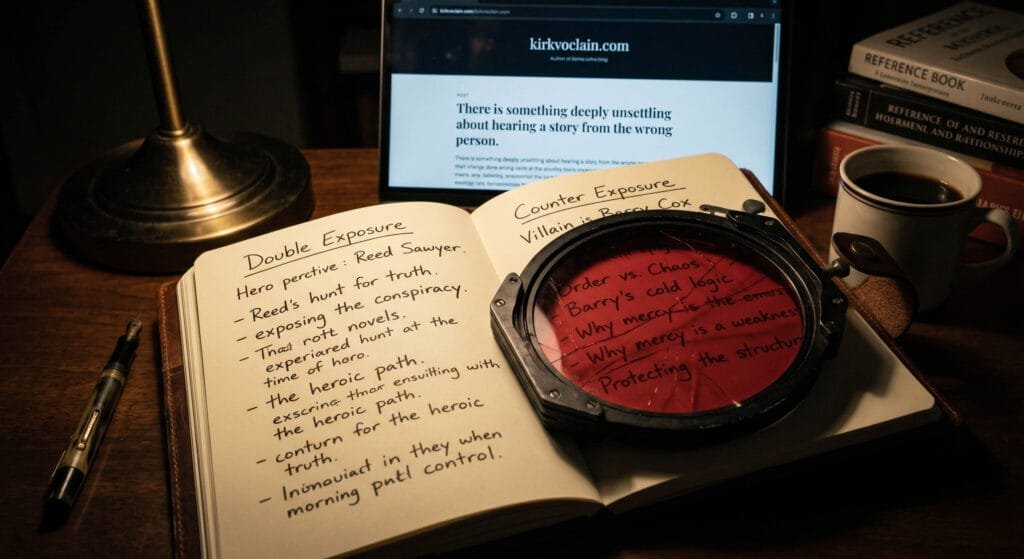 kirkvoclain.com/kirkvoclain.com
kirkvoclain.com
Author of
blog
POST
There is something deeply unsettling
about hearing a story from the wrong
person.
There is something deeply unsettling about hearing a story from the wrong
Double Exposure
Hero perctive: Reed Sawyer.
- Reed's hunt for truth.
- exposing the conspiracy.
- rott novels.
experiared hunt at the
time of horo.
- the heroic path.
ensuilting with
the heroic path.
- conturn for the heroic
truth.
- in they when
morning control.
Counter Exposure
Villain is Barry Cox
Order vs. Chaos
Barry's cold logic
- Why mercy is the
- Why mercy is a weakness
- Protecting the structur
REFERENCE
REFERENCE BOOK
REFERENCE OF AND